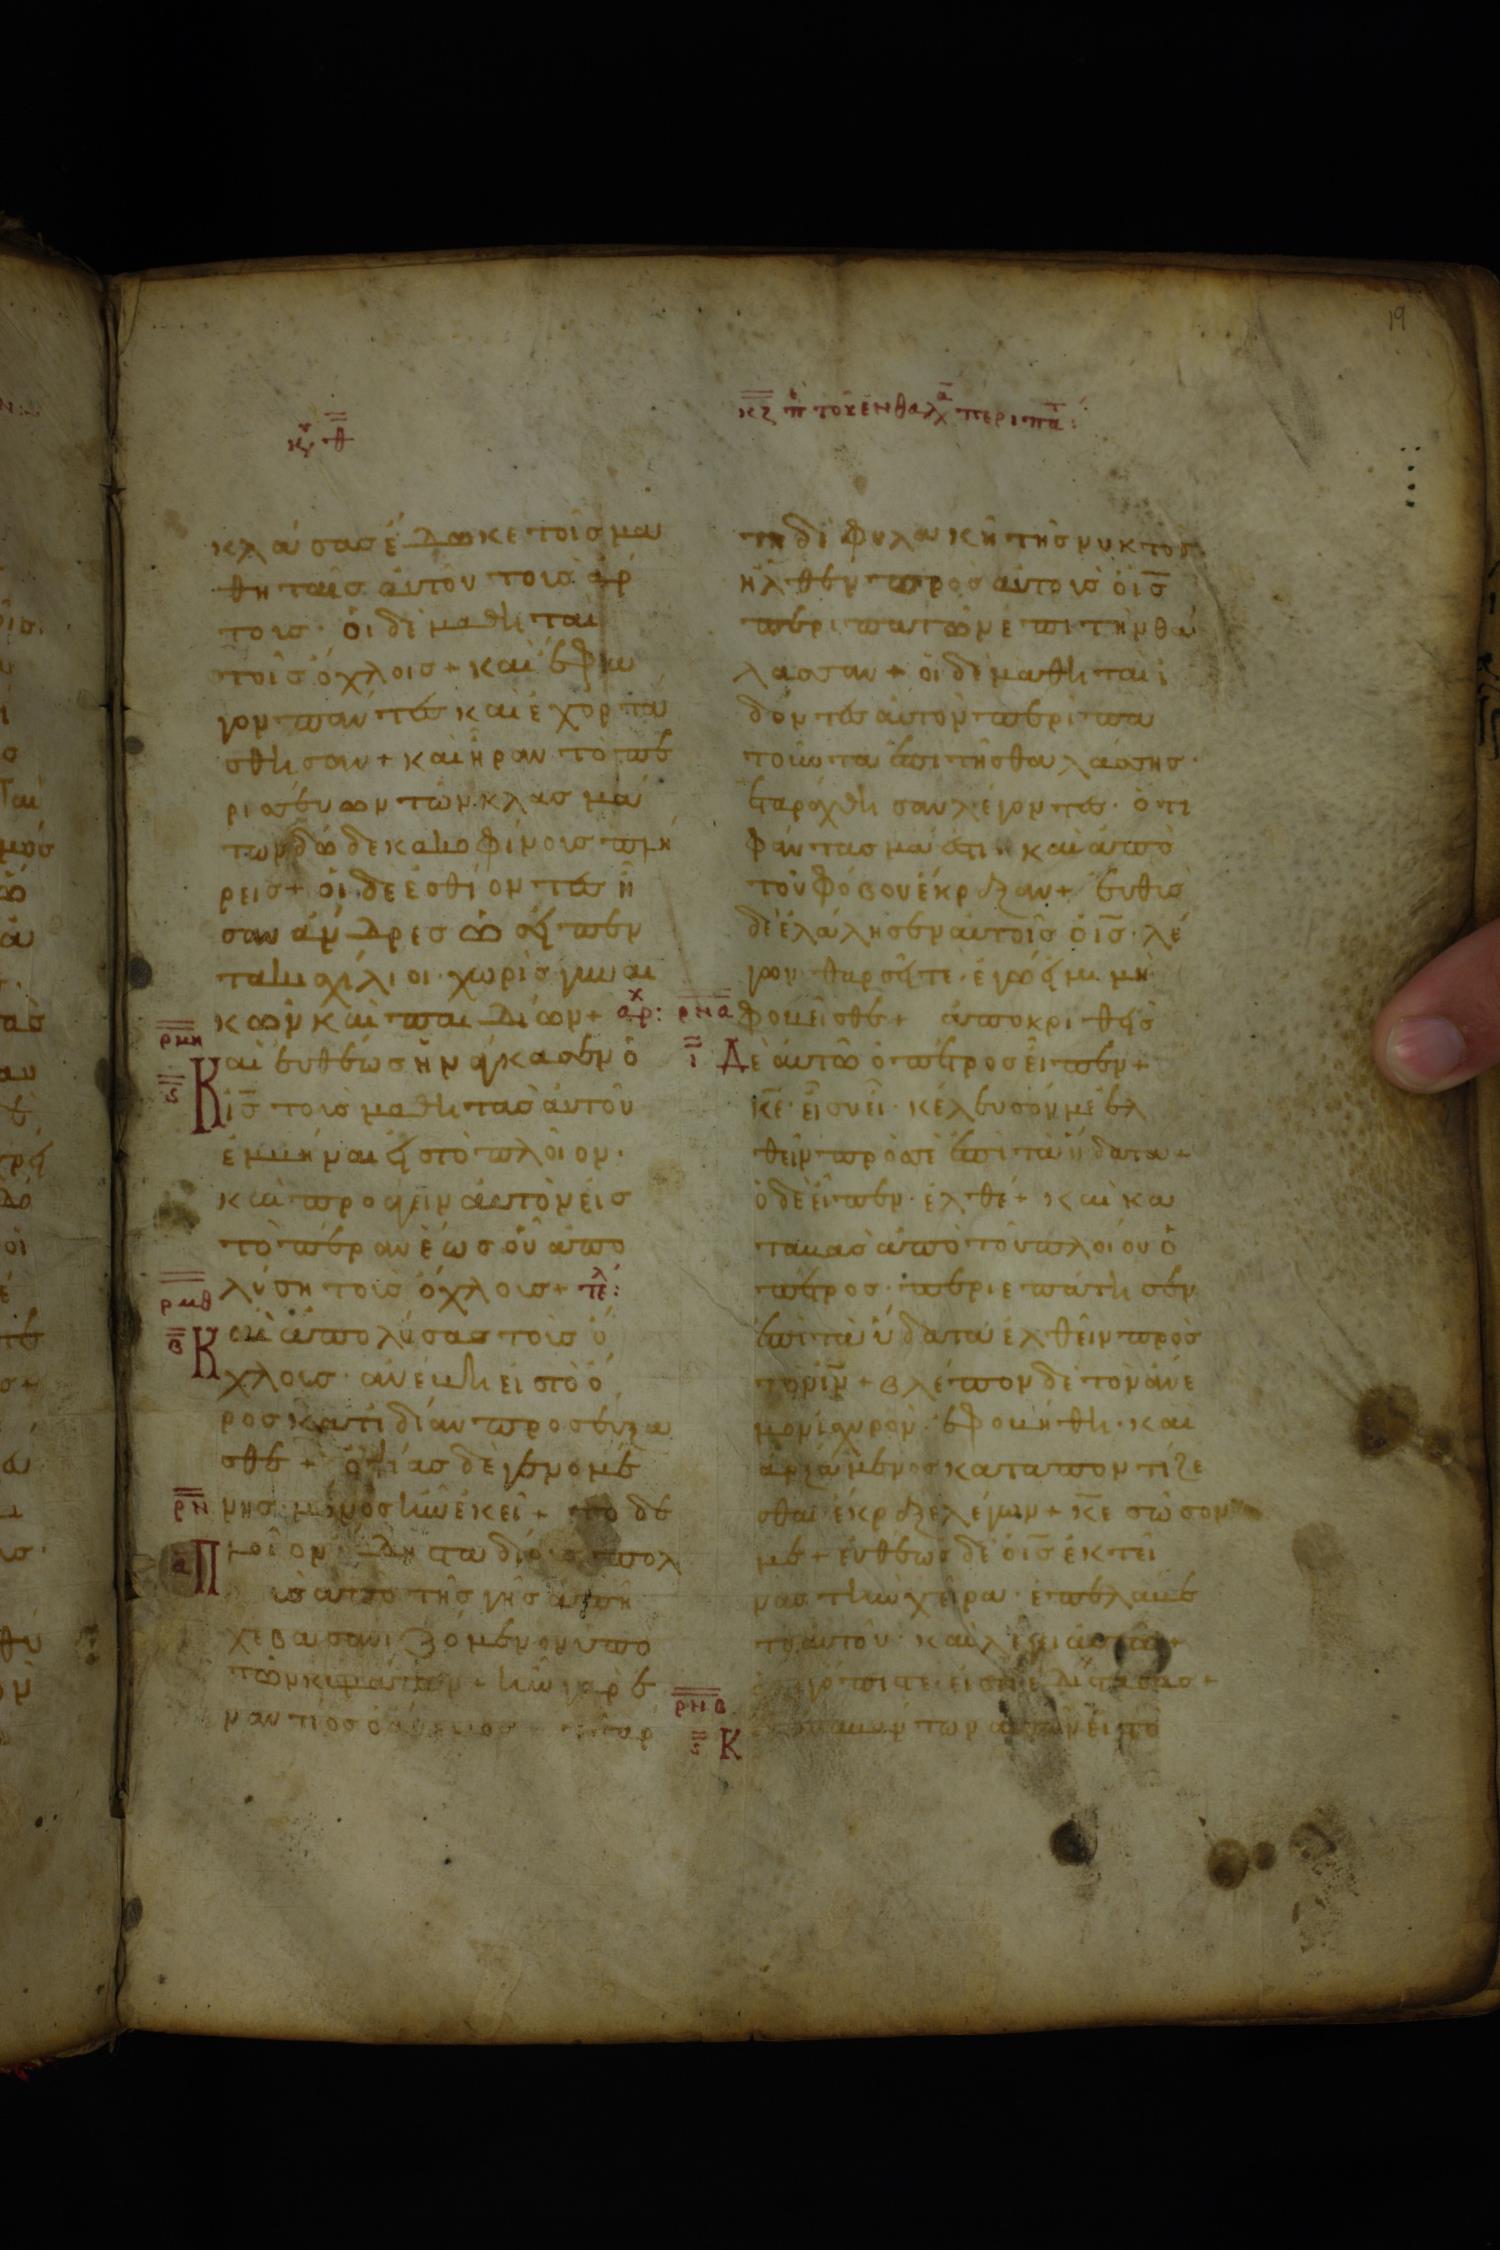 19
κζ π τοῦ ἐν θαλ περιπατ
κυ θ
κλάσας ἔδωκε τοῖς μα
θηταῖς αὐτοῦ τοὺς ἄρ
τους· οἱ δὲ μαθηταὶ
τοῖς ὄχλοις + καὶ ἔφα
γον πάντες καὶ ἐχορτά
σθησαν + καὶ ἦραν τὸ πε
ρισσεύων τῶν κλασμά
των δώδεκα κοφίνους πλή
ρεις + οἱ δὲ ἐσθίοντες ἦ
σαν ἄνδρες ὡσεὶ πεν
τακισχίλιοι· χωρὶς γυναι
κῶν καὶ παιδίων + αρχ:
ρμη
ϛ
Καὶ εὐθέως ἠνάγκασεν ὁ
ις τοὺς μαθητὰς αὐτοῦ
ἐμβῆναι εἰς τὸ πλοῖον·
καὶ προάγειν αὐτὸν εἰς
τὸ πέραν ἕως οὗ ἀπο
λύσῃ τοὺς ὄχλους + τελ:
ρμθ
β
Καὶ ἀπολύσας τοὺς ὄ
χλους· ἀνέβη εἰς τὸ ὄ
ρος κατιδίαν προσεύξα
σθε + ὀψίας δὲ γενομέ
ρν
νης· μόνος ἦν ἐκεῖ + το δὲ
α
Πλοῖον· ἤδη σταδίους πολ
οὺς ἀπὸ τῆς γῆς ἀπεῖ
χε βασανιζόμενον ὑπὸ
τῶν κυμάτων + ἦν γὰρ ἐ
ναντίος ὁ ἄνεμος τετάρ
τη δὲ φυλακῇ τῆς νυκτὸς
ἦλθεν πρὸς αὐτοὺς ὁ ις
περιπατῶν ἐπὶ τὴν θά
λασσαν + οἱ δὲ μαθηταὶ ἰ
δόντες αὐτὸν περιπα
τοῦντα ἐπὶ τῆς θαλάσσης·
ἐταράχθησαν λέγοντες· ὅτι
φάντασμά ἐστι· καὶ ἀπὸ
τοῦ φόβου ἔκραξαν + εὐθὺς
δὲ ἐλάλησεν αὐτοῖς ὁ ις· λέ
γων· θαρσεῖτε· ἐγώ εἰμι μὴ
ρνα
φοβεῖσθε + ἀποκριθεὶς
ι
Δὲ αὐτῶ ὁ πέτρος εἶπεν +
κε· εἰ σὺ εἶ· κέλευσόν με ἐλ
θεῖν πρός σε ἐπὶ τὰ ὕδατα +
ὁ δὲ εἶπεν· ἐλθέ + καὶ κα
ταβὰς ἀπὸ τοῦ πλοίου ὁ
πέτρος· περιεπάτησεν
ἐπὶ τὰ ὕδατα ἐλθεῖν πρὸς
τὸν ιν + βλέπον δὲ τὸν ἄνε
μον ἰσχυρὸν· ἐφοβήθη· καὶ
ἀρξάμενος καταποντίζε
σθαι ἔκραξε λέγων + κε σῶσον
με + εὐθέως δὲ ὁ ις ἐκτεί
νας τὴν χεῖρα· ἐπελάβε
το αὐτοῦ· καὶ λέγει αὐτῶ +
ὀλιγόπιστε· εἰς τί ἐδίστασας +
ρνβ
ϛ
Καὶ ἐμβάντων αὐτῶν εἰς τὸ